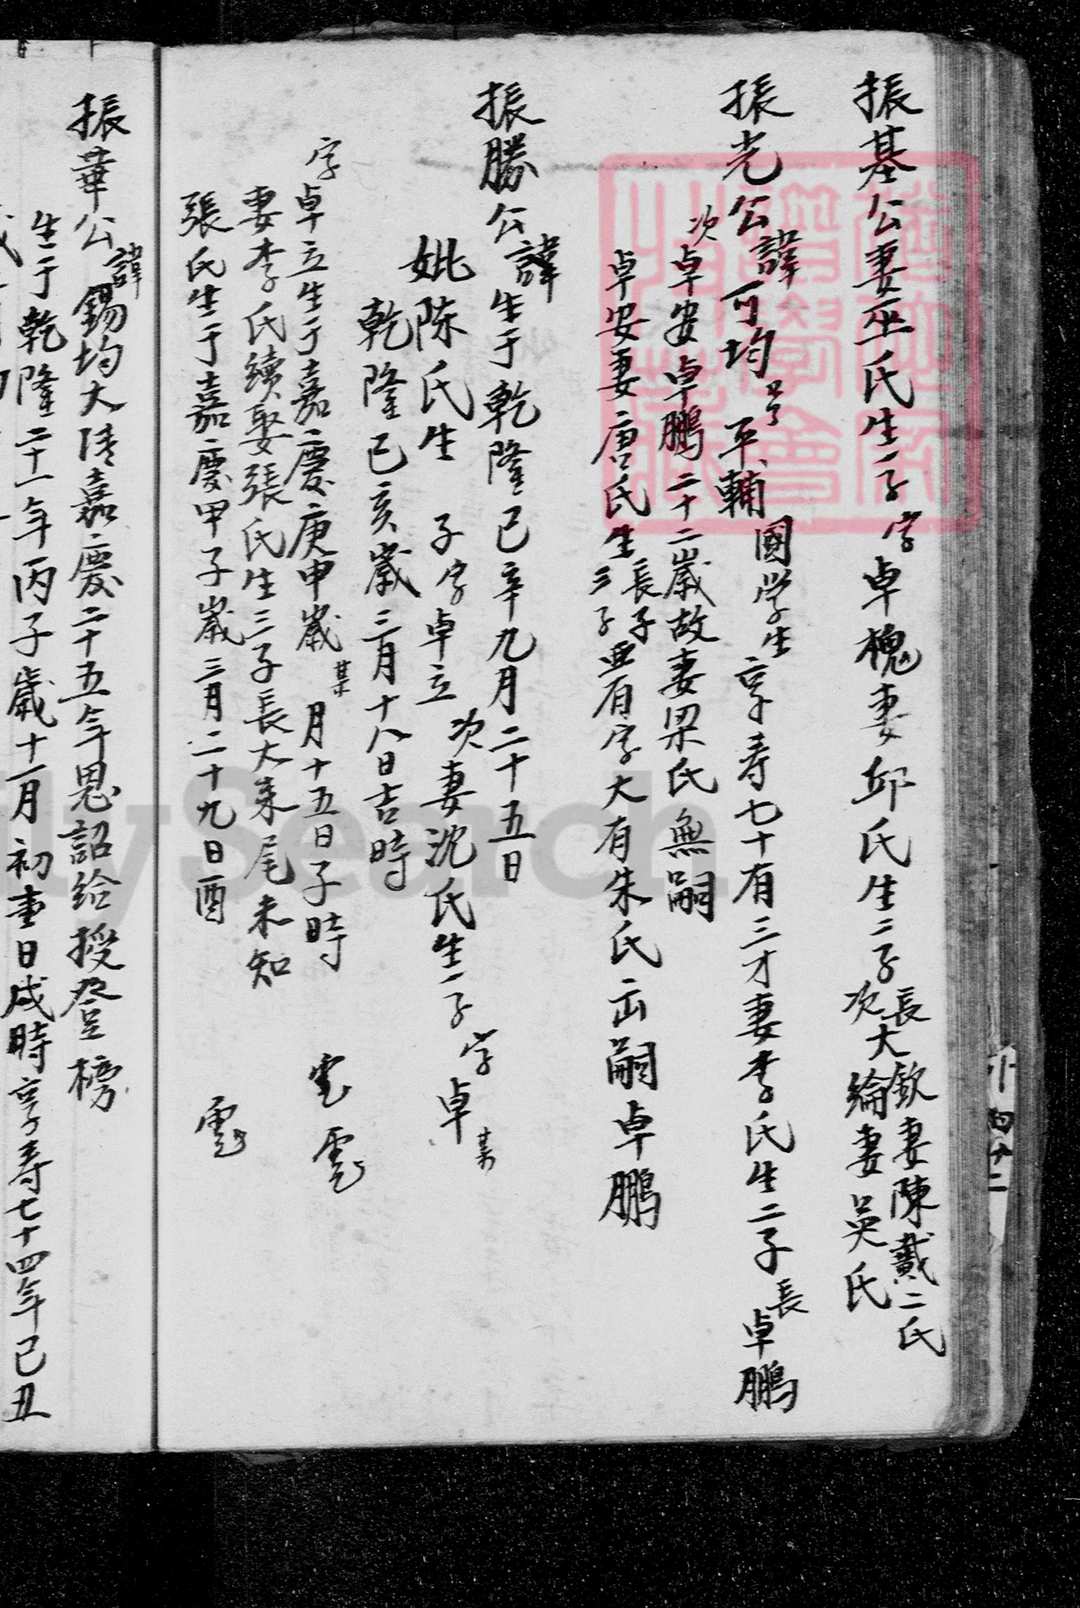 振基公妻巫氏生一子字卓槐妻邱氏生二子長大欽妻陳戴二氏
次大綸妻吳氏
振光公諱可均号平輔國学生享寿七十有三才妻李氏生二子長卓鵬
次卓安卓鵬二十二歲故妻梁氏無嗣
卓安妻唐氏生三子長子典有字大有朱氏出嗣卓鵬
振勝公諱生于乾隆己辛九月二十五日
妣陈氏生子字卓立次妻沈氏生一子字卓某
乾隆己亥歲三月十八日吉時
字卓立生于嘉慶庚申歲某月十五日子時
妻李氏續娶張氏生三子長大来尾未知
張氏生于嘉慶甲子歲三月二十九日酉
振華公諱錫均大清嘉慶二十五年恩詔給授登榜
生于乾隆二十一年丙子歲十一月初重日戌時享寿七十四年己丑
lySearch